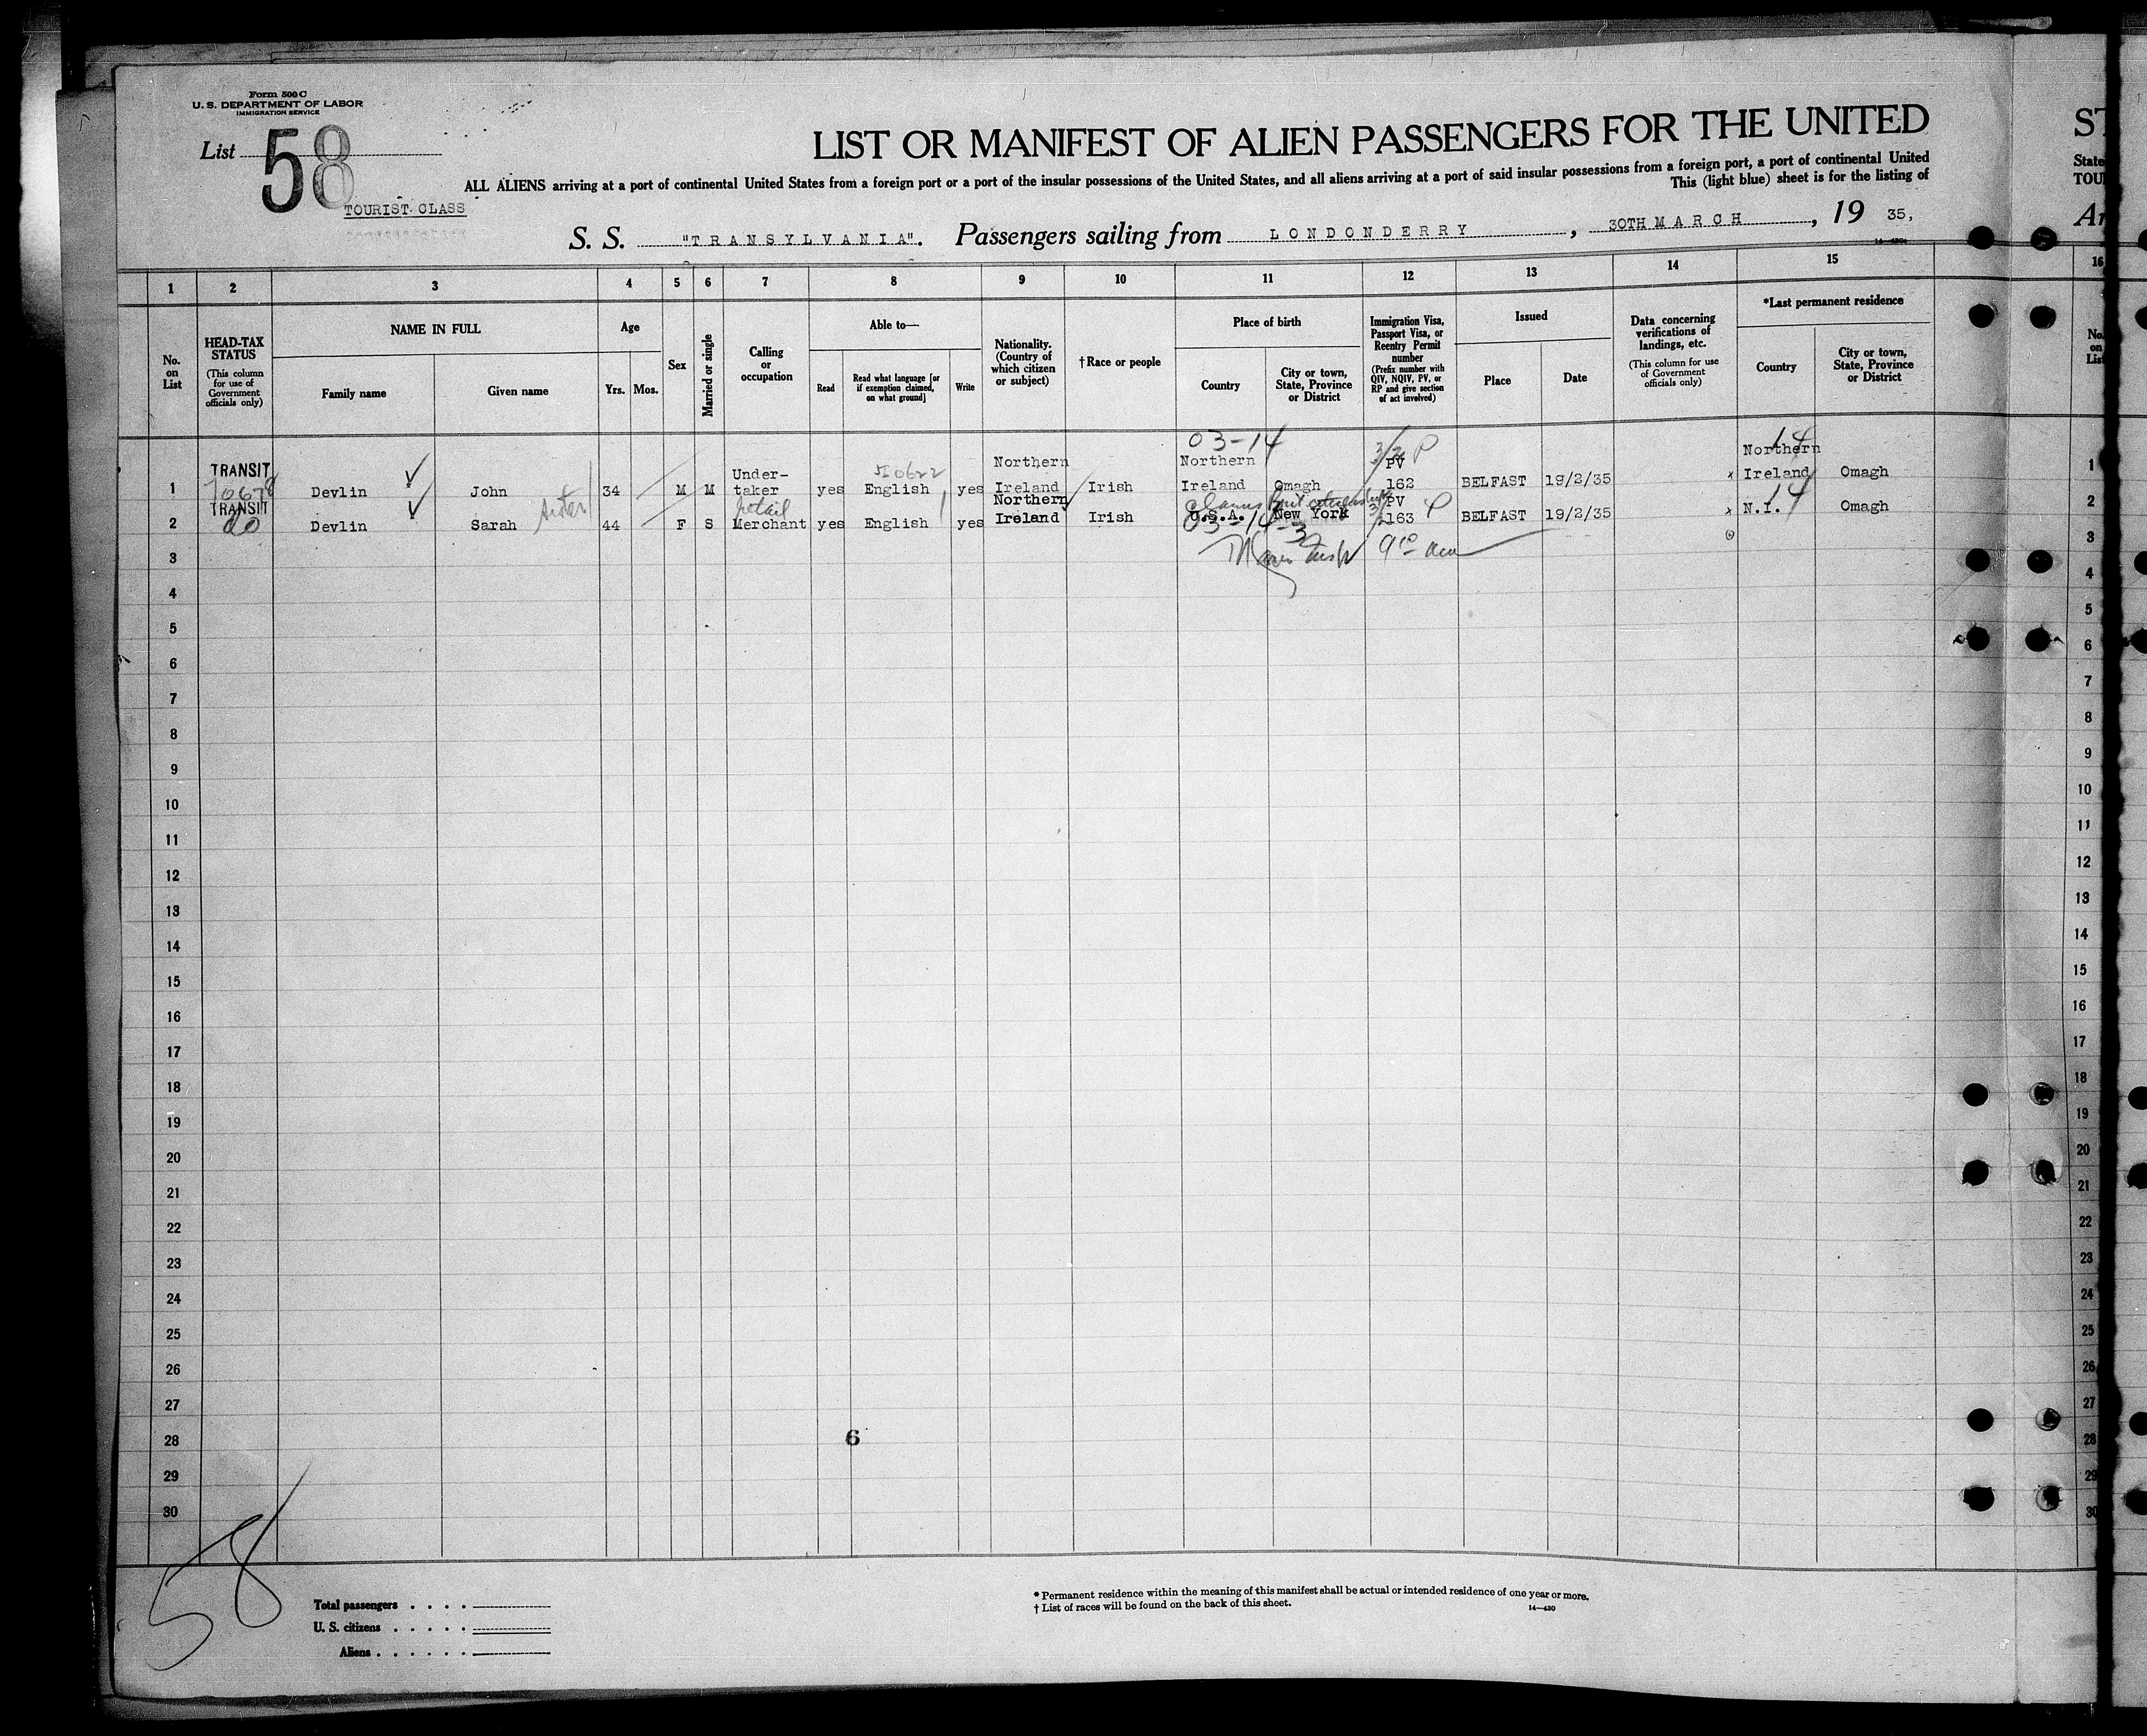 Form 500 C
U. S. DEPARTMENT OF LABOR
IMMIGRATION SERVICE
List 58
TOURIST CLASS
LIST OR MANIFEST OF ALIEN PASSENGERS FOR THE UNITED
ALL ALIENS arriving at a port of continental United States from a foreign port or a port of the insular possessions of the United States, and all aliens arriving at a port of said insular possessions from a foreign port, a port of continental United
This (light blue) sheet is for the listing of
S. S. "TRANSYLVANIA". Passengers sailing from LONDONDERRY, 30TH MARCH, 19 35,
ST
State
TOU
Ar
1 2 3 4 5 6 7 8 9 10 11 12 13 14 15 16
No. on List
HEAD-TAX STATUS
(This column for use of Government officials only)
NAME IN FULL
Family name
Given name
Age
Yrs.
Mos.
Sex
Married or single
Calling or occupation
Able to—
Read
Read what language [or if exemption claimed, on what ground]
Write
Nationality. (Country of which citizen or subject)
†Race or people
Place of birth
Country
City or town, State, Province or District
Immigration Visa, Passport Visa, or Reentry Permit number
(Prefix number with QIV, NQIV, PV, or RP and give section of act involved)
Issued
Place
Date
Data concerning verifications of landings, etc.
(This column for use of Government officials only)
*Last permanent residence
Country
City or town, State, Province or District
No. on List
03-14
3/2 P
14
1 TRANSIT Devlin John 34 M M Undertaker yes English yes Northern Ireland Irish Northern Ireland Omagh PV 162 BELFAST 19/2/35 Northern Ireland Omagh 1
retail
14
2 TRANSIT Devlin Sarah 44 F S Merchant yes English yes Northern Ireland Irish U.S.A. New York PV 163 BELFAST 19/2/35 N.I. Omagh 2
03-14-3
3 3
4 4
5 5
6 6
7 7
8 8
9 9
10 10
11 11
12 12
13 13
14 14
15 15
16 16
17 17
18 18
19 19
20 20
21 21
22 22
23 23
24 24
25 25
26 26
27 27
6
28 28
29 29
30 30
58
Total passengers . . . .
U. S. citizens . . . . .
Aliens . . . . . .
* Permanent residence within the meaning of this manifest shall be actual or intended residence of one year or more.
† List of races will be found on the back of this sheet.
14—430